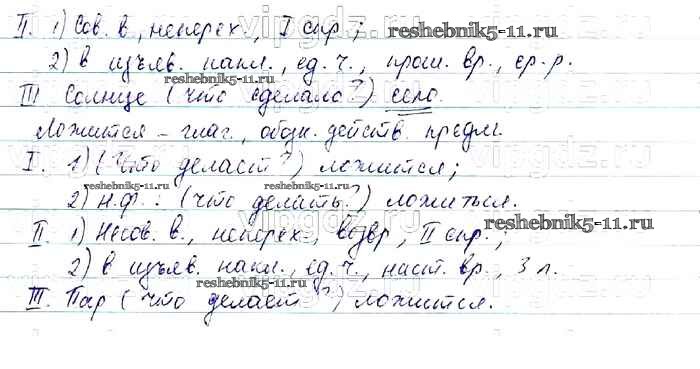 II. 1) Сов. в., неперех., I спр.;
reshebnik5-11.ru
2) в изъяв. накл., ед. ч., прош. вр., ср. р.
reshebnik5-11.ru
III Солнце (что сделало?) село.
Ложится – глаг., обозн. действ. предм.
I. 1) (Что делает?) ложится;
reshebnik5-11.ru reshebnik5-11.ru reshebnik5-11.ru
2) Н.ф.: (что делать?) ложиться.
vipgdz.ru
II. 1) Несов. в., неперех., возвр., II спр.;
reshebnik5-11.ru
2) в изъяв. накл., ед. ч., наст. вр., 3 л.
reshebnik5-11.ru
III. Пар (что делает?) ложится.